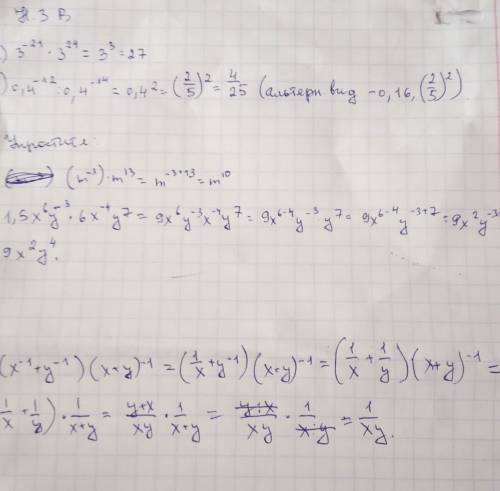 № 3 В
) 3⁻²¹ · 3²⁴ = 3³ = 27
) 0,4⁻¹² : 0,4⁻¹⁴ = 0,4² = (2/5)² = 4/25 (альтерн. вид - 0,16, (2/5)²)
Упростите
(m⁻³) · m¹³ = m⁻³⁺¹³ = m¹⁰
1,5x⁶y⁻³ · 6x⁻⁴y⁷ = 9x⁶y⁻³x⁻⁴y⁷ = 9x⁶⁻⁴y⁻³y⁷ = 9x⁶⁻⁴y⁻³⁺⁷ = 9x²y⁻³
9x²y⁴.
(x⁻¹+y⁻¹)(x+y)⁻¹ = (1/x + y⁻¹)(x+y)⁻¹ = (1/x + 1/y)(x+y)⁻¹ =
1/x + 1/y) · 1/x+y = y+x/xy · 1/x+y = y+x/xy · 1/x+y = 1/xy.